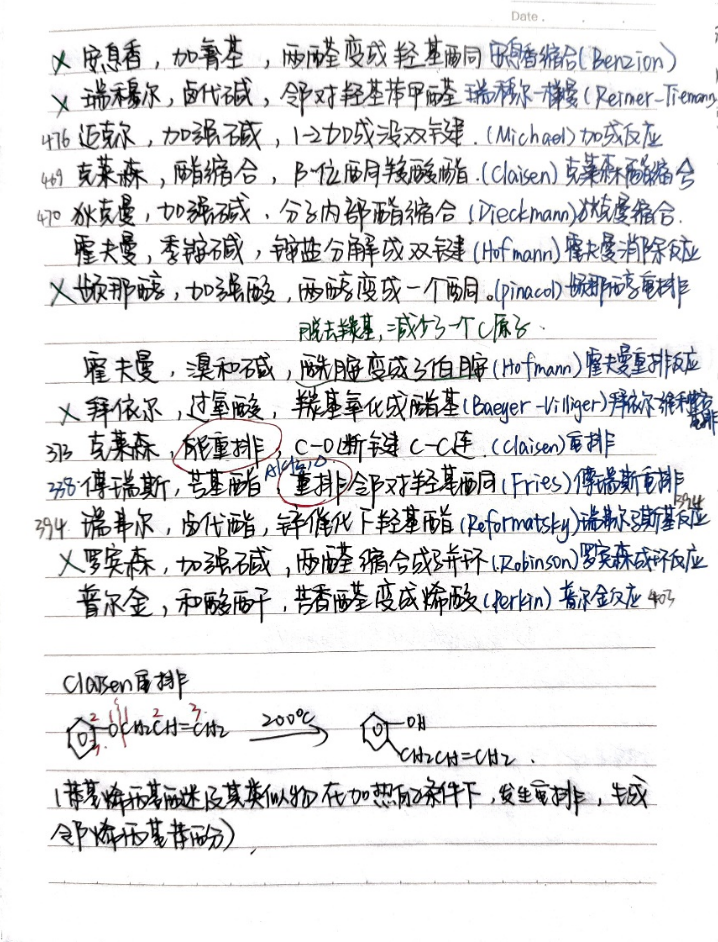 Date.
× 安息香，加氰基，两醛变成羟基酮 安息香缩合(Benzion)
× 瑞穆尔，卤代碱，邻对羟基苯甲醛 瑞穆尔-梯曼(Reimer-Tiemann
476 迈克尔，加强碱，1-2加成没双键.(Michael)加成反应
469 克莱森，酯缩合，β-位酮羧酸酯.(Claisen)克莱森酯缩合
470 狄克曼，加强碱.分子内部酯缩合(Dieckmann)狄克曼缩合.
霍夫曼，季铵碱，铵盐分解成双键(Hofmann)霍夫曼消除反应
× 频那醇，加强酸，两醇变成一个酮。(pinacol)频那醇重排
脱去羰基，减少了一个C原子.
霍夫曼，溴和碱，酰胺变成了伯胺(Hofmann)霍夫曼重排反应
× 拜依尔，过氧酸，羰基氧化成酯基(Baeyer-Villiger)拜依尔维利格重排
313 克莱森，能重排，C-O断键 C-C连.(Claisen)重排
AlCl3,△
338. 傅瑞斯，芳基酯，重排邻对羟基酮(Fries)傅瑞斯重排
394 瑞弗尔，卤代酯，锌催化下羟基酯(Reformatsky)瑞弗尔马斯基反应 394
× 罗宾森，加强碱，两醛缩合成了并环(Robinson)罗宾森成环反应
普尔金，和酸酐，芳香醛变成烯酸(Perkin)普尔金反应 403
Claisen重排
OCH2CH=CH2 1 2 3 1 2 3 200℃ OH
CH2CH=CH2.
(苯基烯丙基醚及其类似物在加热的条件下，发生重排，生成
邻烯丙基苯酚)